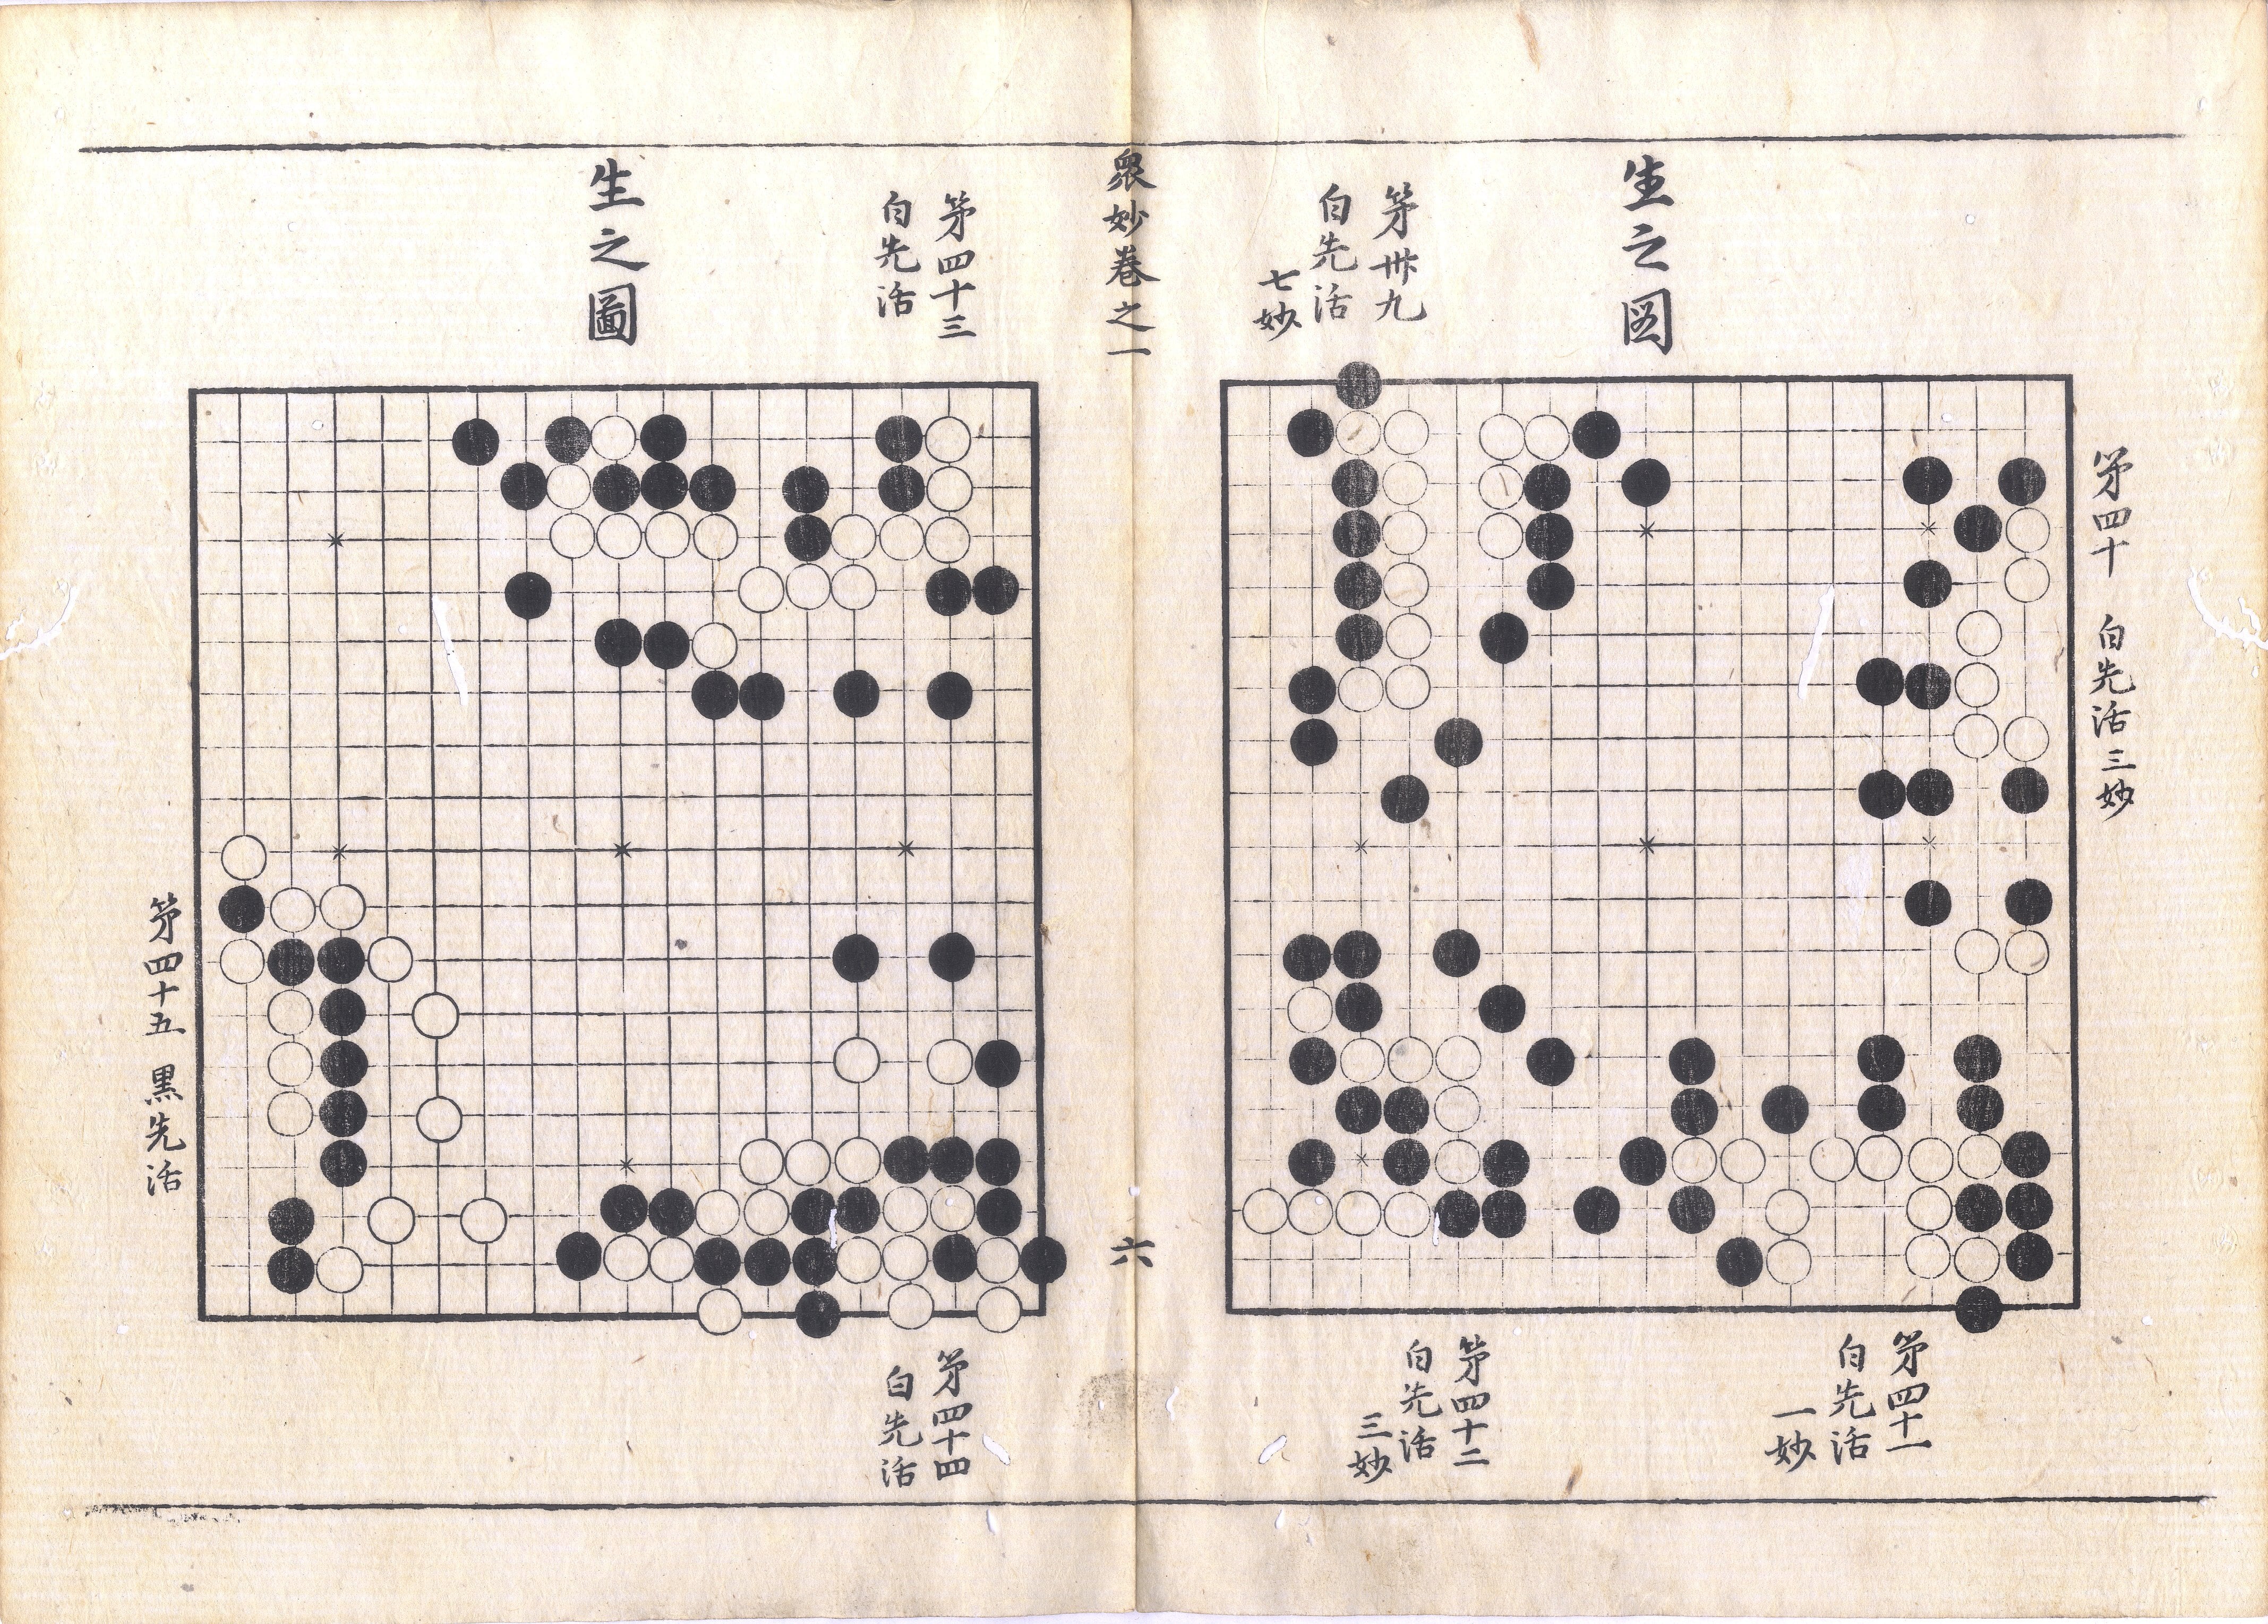 生之図
第四十 白先活三妙
第卅九
白先活
七妙
第四十一
白先活
一妙
第四十二
白先活
三妙
衆妙巻之一
六
生之圖
第四十三
白先活
第四十四
白先活
第四十五 黒先活